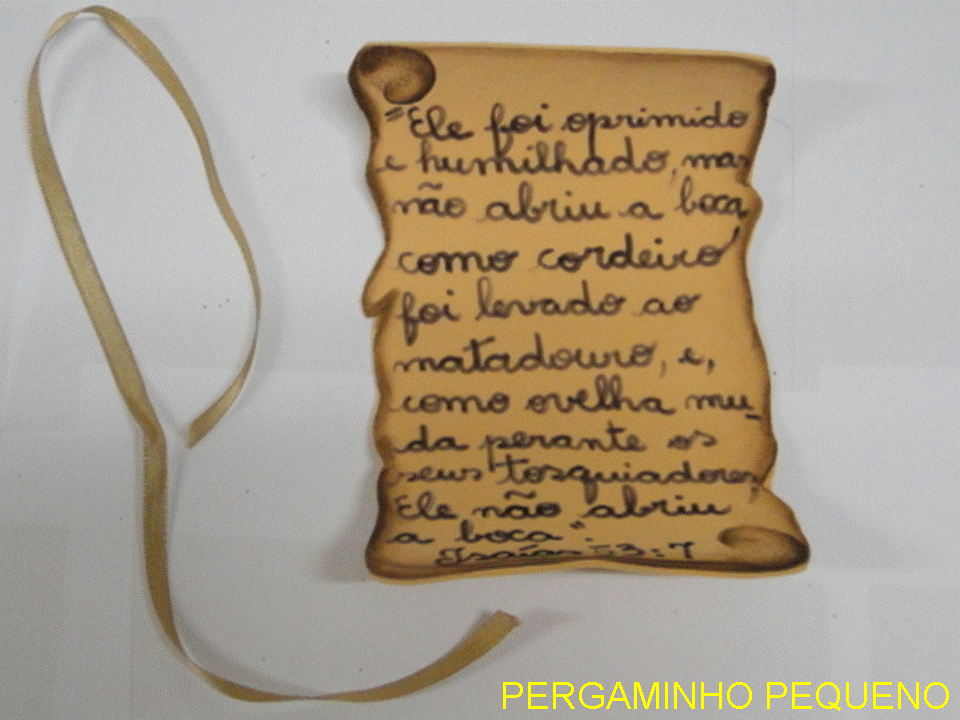 "Ele foi oprimido
e humilhado, mas
não abriu a boca,
como cordeiro
foi levado ao
matadouro, e,
como ovelha mu-
da perante os
seus tosquiadores,
Ele não abriu
a boca".
Isaías 53:7
PERGAMINHO PEQUENO